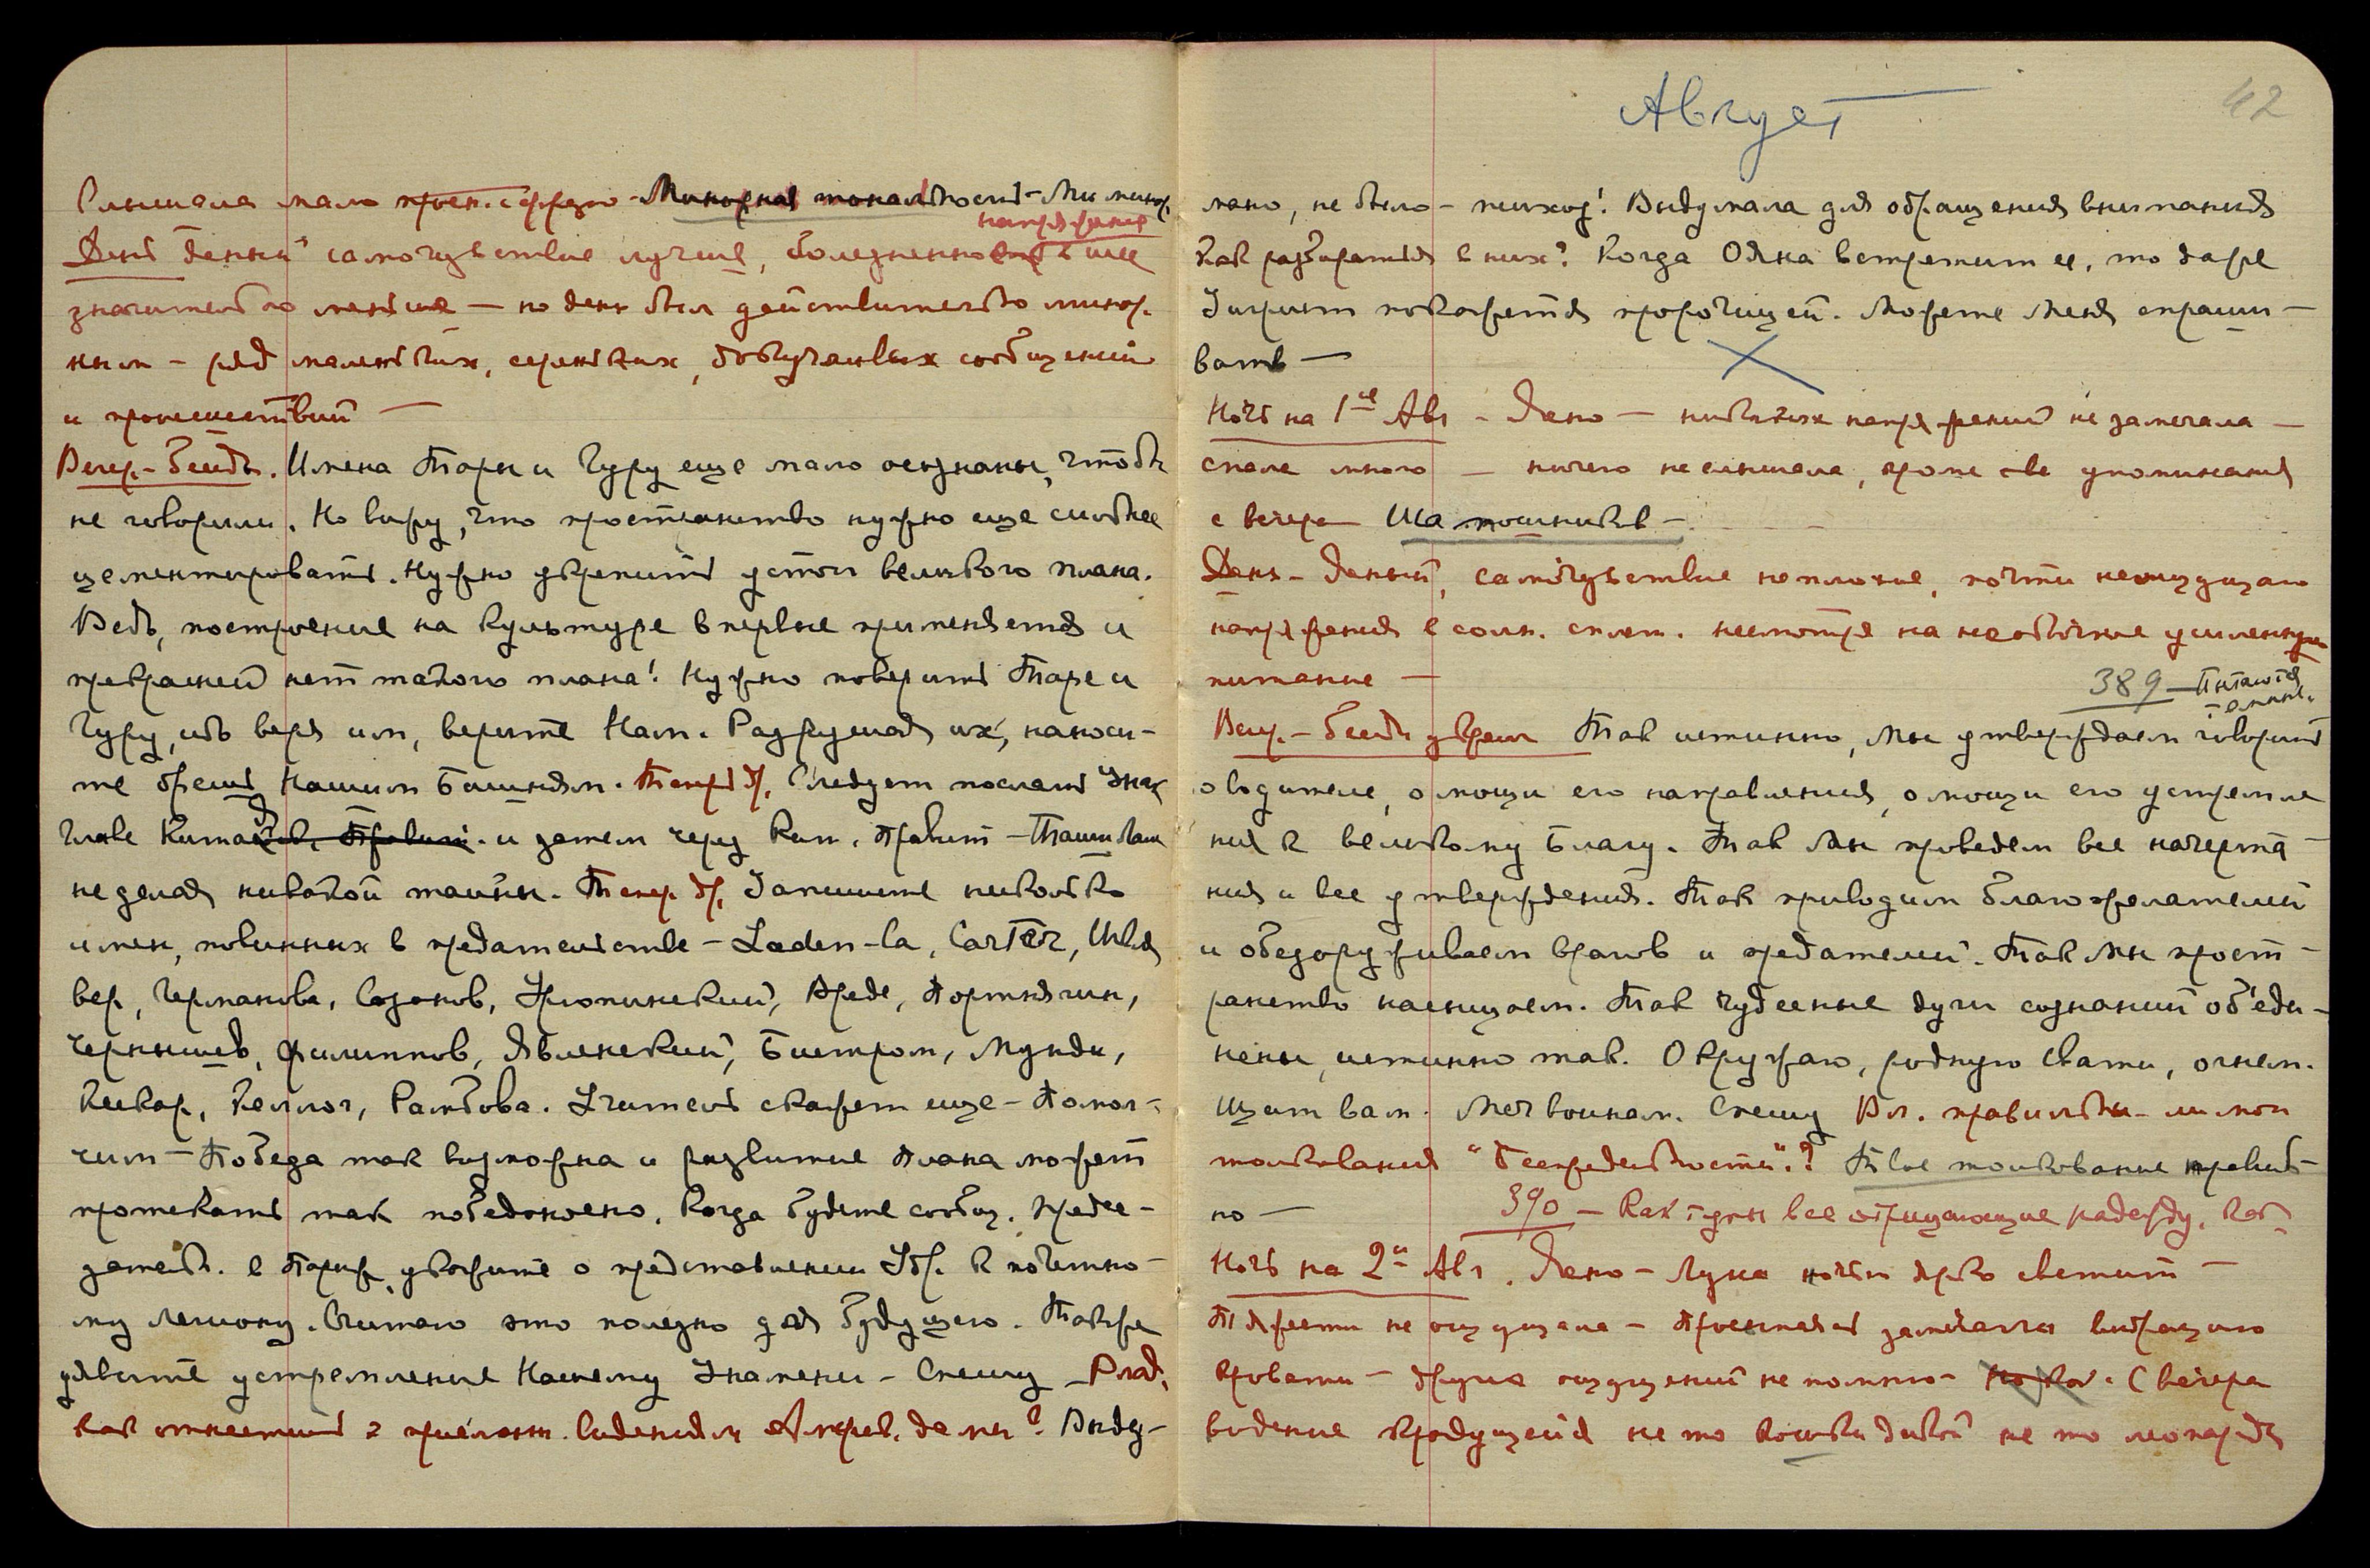 Слышала мало просн. с фразою - Минорная тональность - Ми минор.
напряжение
День ясный самочувствие лучше, болезненность в шее
значительно меньше — но день был действительно минор-
ным - ряд маленьких, серьёзных, докучливых сообщений
и происшествий —
Вечер. - Беседа. Имена Тары и Гуру еще мало осознаны, чтобы
не говорили. Но вижу, что пространство нужно еще сильнее
цементировать. Нужно укрепить устои великого плана.
Ведь, построение на культуре впервые применяется и
прекрасней нет такого плана! Нужно поверить Таре и
Гуру, ибо веря им, верите Нам. Разрушая их, наноси-
те брешь Нашим Башням. Теперь др. Следует послать Знак
главе Китая и затем через Кит. Правит. - Таши Ламе
не делая никакой тайны. Теперь др. Запишите несколько
имен, повинных в предательстве - Laden-la, Carter,
вер, Германова, Сазонов, Уртюпинский, Вреде, Портнягин,
Чернышев, Филиппов, Явленский, Быстром, Мунди,
Кискар, Келлог, Рамбова. Учитель скажет еще - Помол-
чим - Победа так возможна и развитие Плана может
протекать так победоносно. Когда будете сообщ. Предсе-
дательн. в Париж, укажите о представлении Удр. к почетно-
му легиону. Считаю это полезно для будущего. Также
явите устремление Нашему Знамени - Спешу - Влад.
как отнестись к присланн. видениям Америк. дамы? Выду-
Август
42
мано, не было - психоз! Выдумала для обращения внимания
Как разбираться в них? Когда Ояна встретит ее, то даже
Зигрит покажется пророчицей. Можете Меня спраши-
вать —
Ночь на 1ое Авг - Ясно — никаких напряжений не замечала —
спала много — ничего не слышала, кроме упоминания
с вечера Ша пошников -
День - Ясный, самочувствие неплохие, почти не ощущаю
напряжения в солн. сплет. несмотря на необычные усиленную
питание —
389 - Пытаются
темные.
Веч. - Беседа Так истинно, Мы утверждаем говорить
о водителе, о мощи его направления, о мощи его устремле
ния к великому Благу. Так Мы проведем все начерта-
ния и все утверждения. Так приводим благожелателей
и обезоруживаем врагов и предателей. Так Мы прост-
ранство насыщаем. Так чудесные дуги сознаний об'еди-
нены, истинно так. Окружаю, родную Свати, огнем.
Щит вам. Меч воинам. Спешу Вл. правильны - ли мои
толкования "Беспредельности"? Твое толкование правиль-
но —
390 - Как туги все отрицающие надежду. Как
Ночь на 2е Авг. Ясно - Луна ночью ярко светит —
Тяжести не ощущала - Просыпаясь замечала вибрацию
кровати - других ощущений не помню - С вечера
видение крадущейся не то кошки дикой не то леопарда